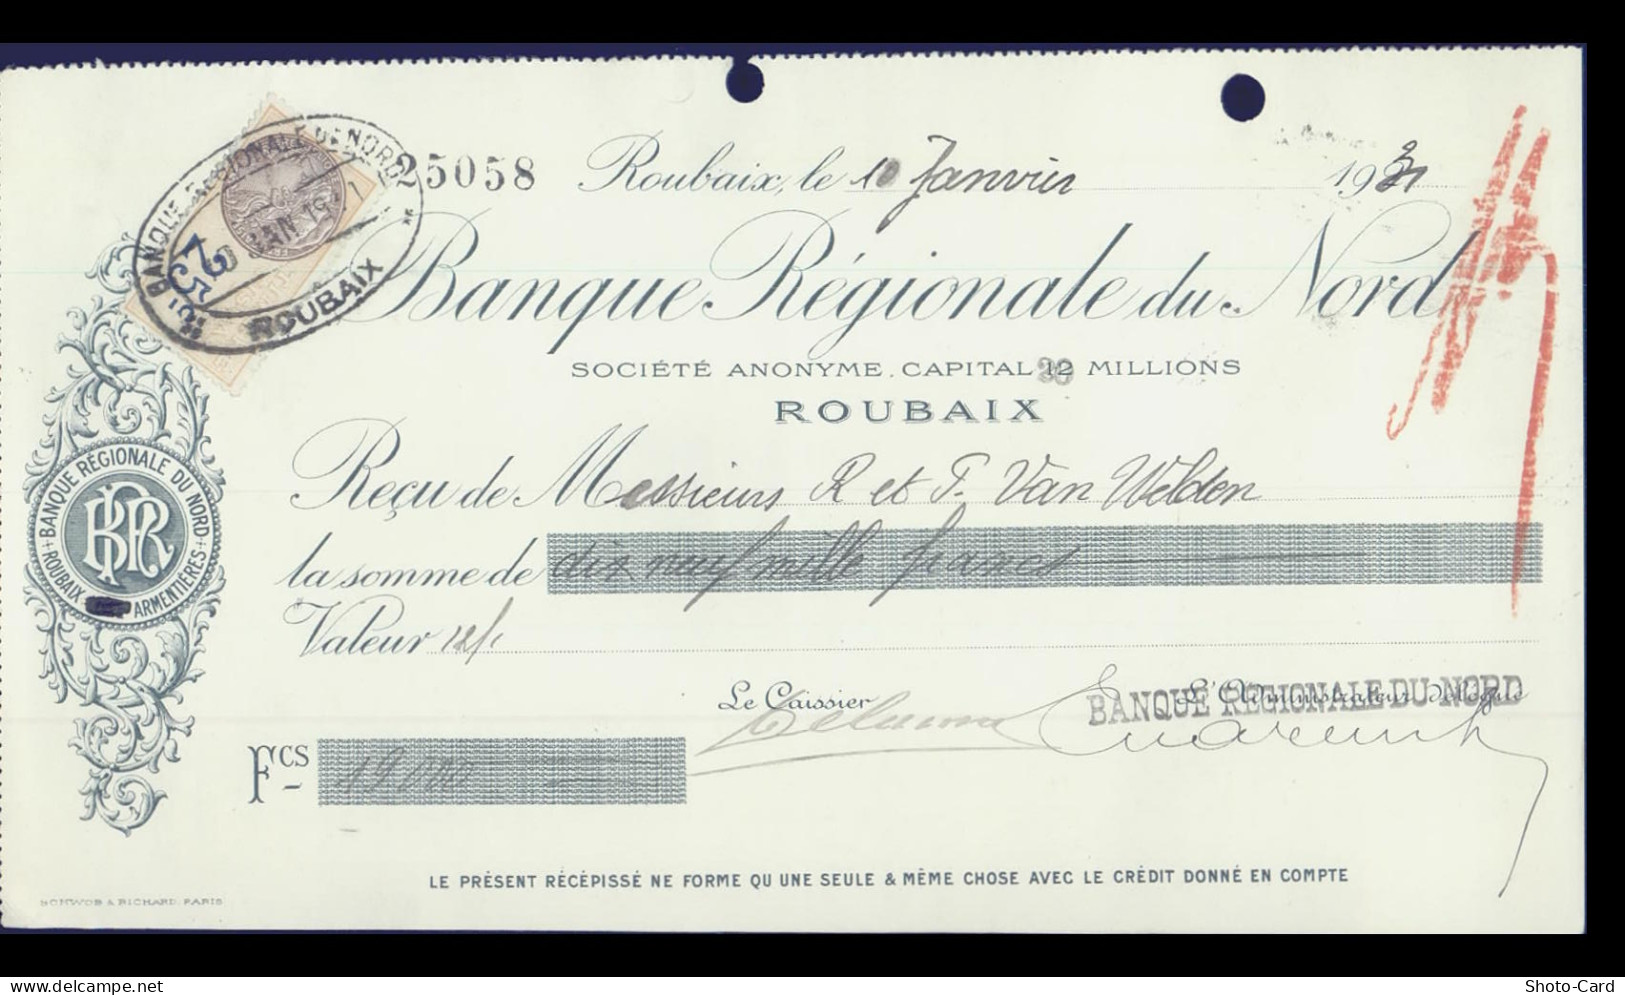 25058
Roubaix, le 10 Janvier 1931
BANQUE RÉGIONALE DU NORD
JAN 1931
ROUBAIX
Banque Régionale du Nord
SOCIÉTÉ ANONYME. CAPITAL 12 MILLIONS
20
ROUBAIX
BANQUE RÉGIONALE DU NORD
ROUBAIX ARMENTIÈRES
BRN
Reçu de Messieurs R et F. Van Welden
la somme de dix neuf mille francs
Valeur 12/1
Le Caissier
L'Administrateur délégué
BANQUE RÉGIONALE DU NORD
Fcs 19.000
LE PRÉSENT RÉCÉPISSÉ NE FORME QU UNE SEULE & MÊME CHOSE AVEC LE CRÉDIT DONNÉ EN COMPTE
SCHWOB & RICHARD, PARIS
www.delcampe.net
Shoto-Card